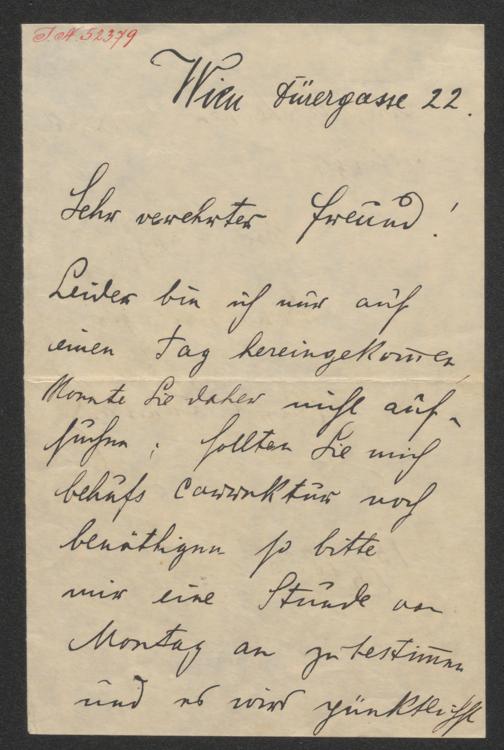 I.N. 52379
Wien Dürergasse 22.
Sehr verehrter Freund!
Leider bin ich nur auf
einen Tag hereingekommen,
konnte Sie daher nicht auf-
suchen; sollten Sie mich
behufs Correktur noch
benöthigen so bitte
mir eine Stunde von
Montag an zu bestimmen
und es wird pünktlichst